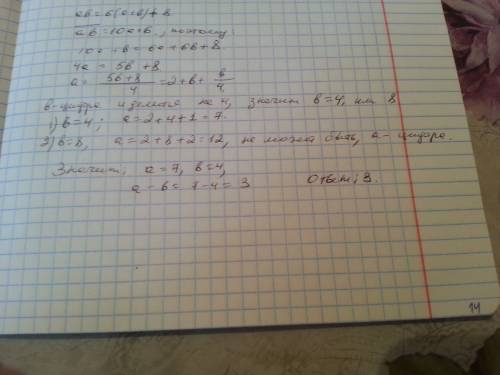 ab = 6(a+b)+8
ab = 10a+b, поэтому
10a+b = 6a+6b+8
4a = 5b+8
a = (5b+8)/4 = 2+b+b/4
b-цифра и делится на 4, значит b=4, или 8
1) b=4; a=2+4+1=7.
2) b=8, a=2+8+2=12, не может быть, a - цифра.
Значит, a=7, b=4,
a-b=7-4=3 Ответ: 3.
14